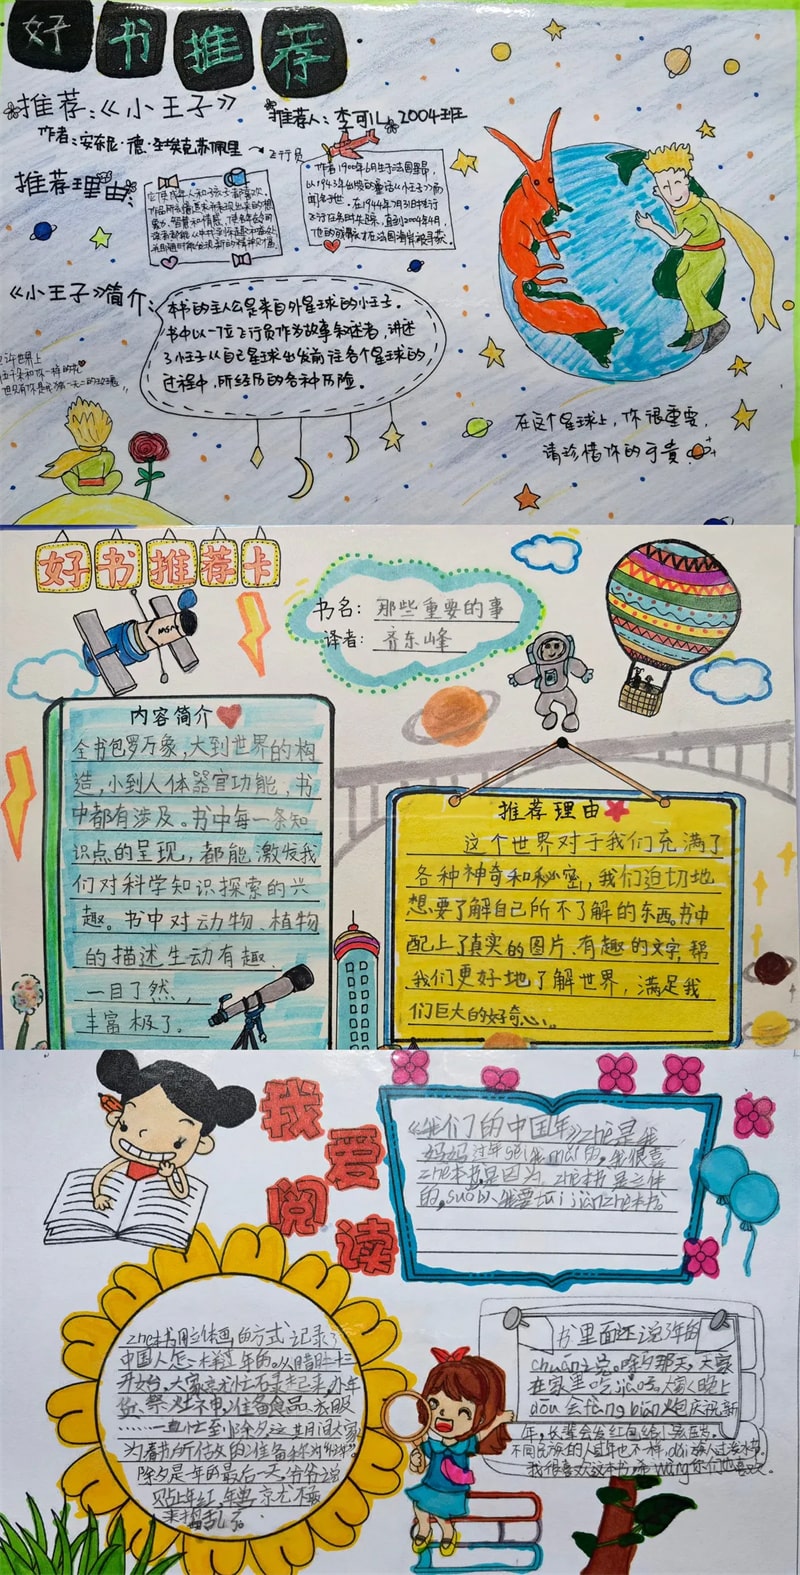 好书推荐
推荐:《小王子》
推荐人: 李可儿 2004班
作者: 安东尼·德·圣埃克苏佩里 → 飞行员
推荐理由:
作者1900年6月生于法国里昂,
以1943年出版的童话《小王子》而
闻名于世。在1944年7月31日执行
飞行任务时失踪,直到2004年4月,
他的残骸才在法国海岸被寻获。
《小王子》简介:
本书的主人公是来自外星球的小王子。
书中以一位飞行员作为故事叙述者,讲述
了小王子从自己星球出发前往各个星球的
过程中,所经历的各种历险。
也许世界上
五千朵和你一样的花
在这个星球上,你很重要,
请珍惜你的可贵
好书推荐卡
书名: 那些重要的事
译者: 齐东峰
内容简介
全书包罗万象,大到世界的构
造,小到人体器官功能,书
中都有涉及。书中每一条知
识点的呈现,都能激发我
们对科学知识探索的兴
趣。书中对动物、植物
的描述生动有趣、
一目了然,
丰富极了。
推荐理由
这个世界对于我们充满了
各种神奇和秘密,我们迫切地
想要了解自己所不了解的东西。书中
配上了真实的图片、有趣的文字,帮
我们更好地了解世界,满足我
们巨大的好奇心。
我爱阅读
《我们的中国年》zhè是我
妈妈过年gěi我mǎi的,我很喜
zhè本书,是因为zhè本书是立体
的,suǒ以我要tuī jiàn zhè本书。
zhè本书用立体画的方式记录了
中国人怎么样过年的。从腊月二十三
开始,大家就忙不录起来,办年
货、祭灶神、准备食品、衣服
……一直忙到除夕,这其间大家
为春节所做的准备称为“忙年”。
除夕是年的最后一天,爷爷说
贴上年红,年兽就不敢
来捣乱了。
书里面还说了年的
chuán说。除夕那天,大家
在家里吃jiǎo子,大家晚上
dōu会fàng biān炮庆祝新
年,长辈会发红包给小孩压岁。
不同民族的人过年也不一样,
我很喜欢这本书,希wàng你们也喜欢。